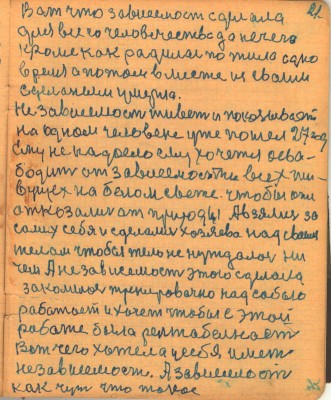 21.
Вот что зависемост сделала
для всего человечества да нечего
кроме как радилис пожила одно
время а потом вместе из своим
сделанием умерла.
Независемост живет и показывает
на одном человеке уже пошел 27 год
ему не надоело ему хочется осва-
бодит от зависемости всех жи-
вущех на белом свете. чтобы они
отказалис от природы А взялис за
самих себя и сделалис хозяева над своим
телом чтобы тело не нуждалос ни
чем А независемост этого сделала
закалилос тренировачно над сабою
работает и хочет чтобы с этой
работе была рентабелност
Вот чего хотела у себя имет
независемост. А зависемост
как чут что такое